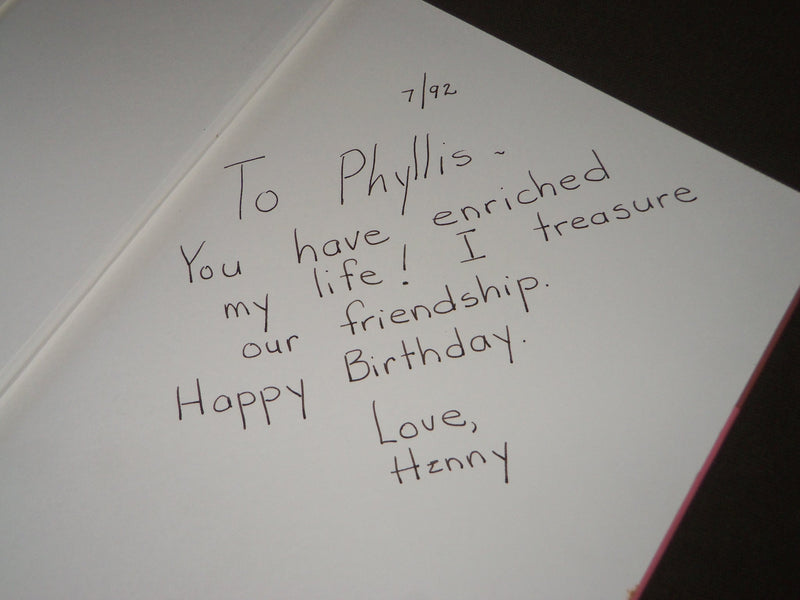 7/92
To Phyllis ~
You have enriched
my life! I treasure
our friendship.
Happy Birthday.
Love,
Henny